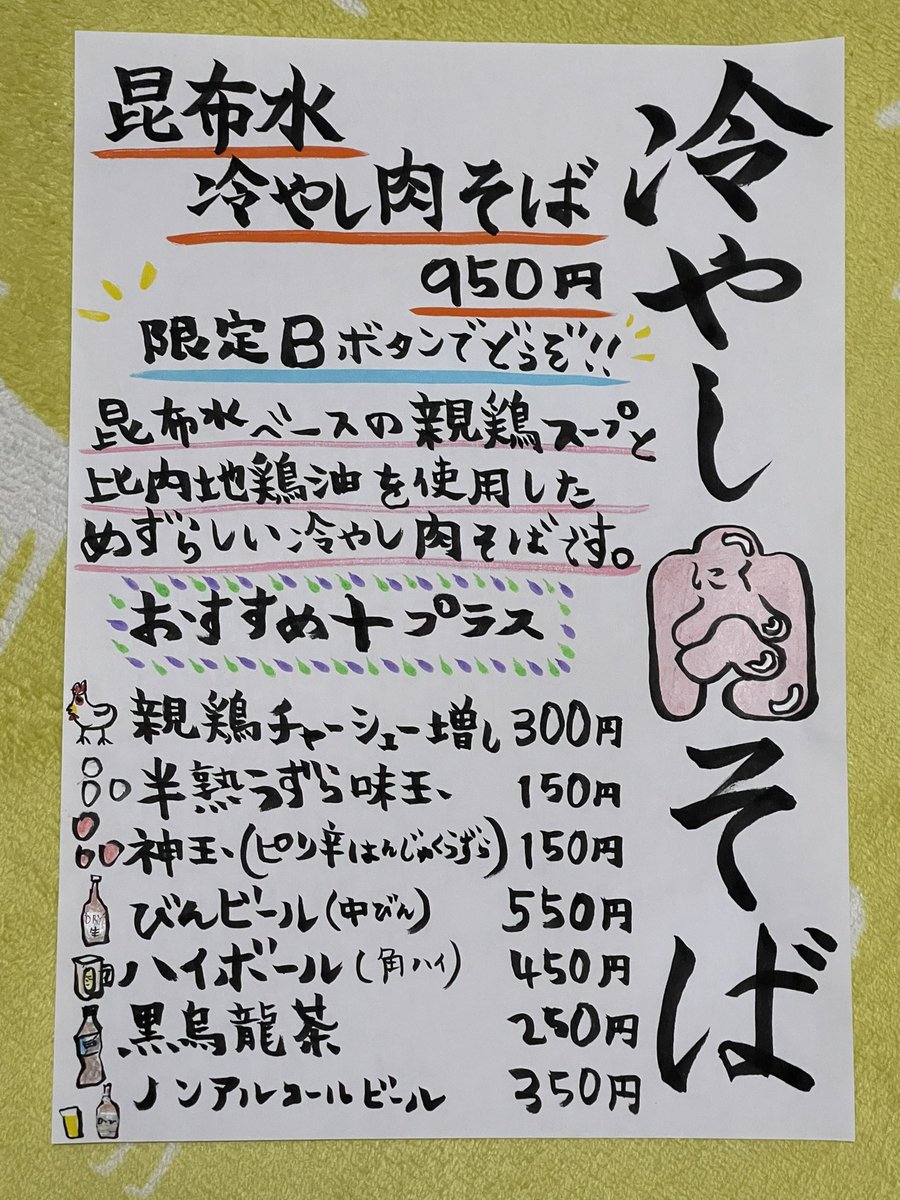 冷やし肉そば
にく
昆布水
冷やし肉そば
950円
限定Bボタンでどうぞ!!
昆布水ベースの親鶏スープと
比内地鶏油を使用した
めずらしい冷やし肉そばです。
おすすめ+プラス
親鶏チャーシュー増し 300円
半熟うずら味玉、 150円
神玉、(ピリ辛はんじゅくうずら) 150円
びんビール(中びん) 550円
DRY
生
ハイボール(角ハイ) 450円
黒烏龍茶 250円
ノンアルコールビール 350円